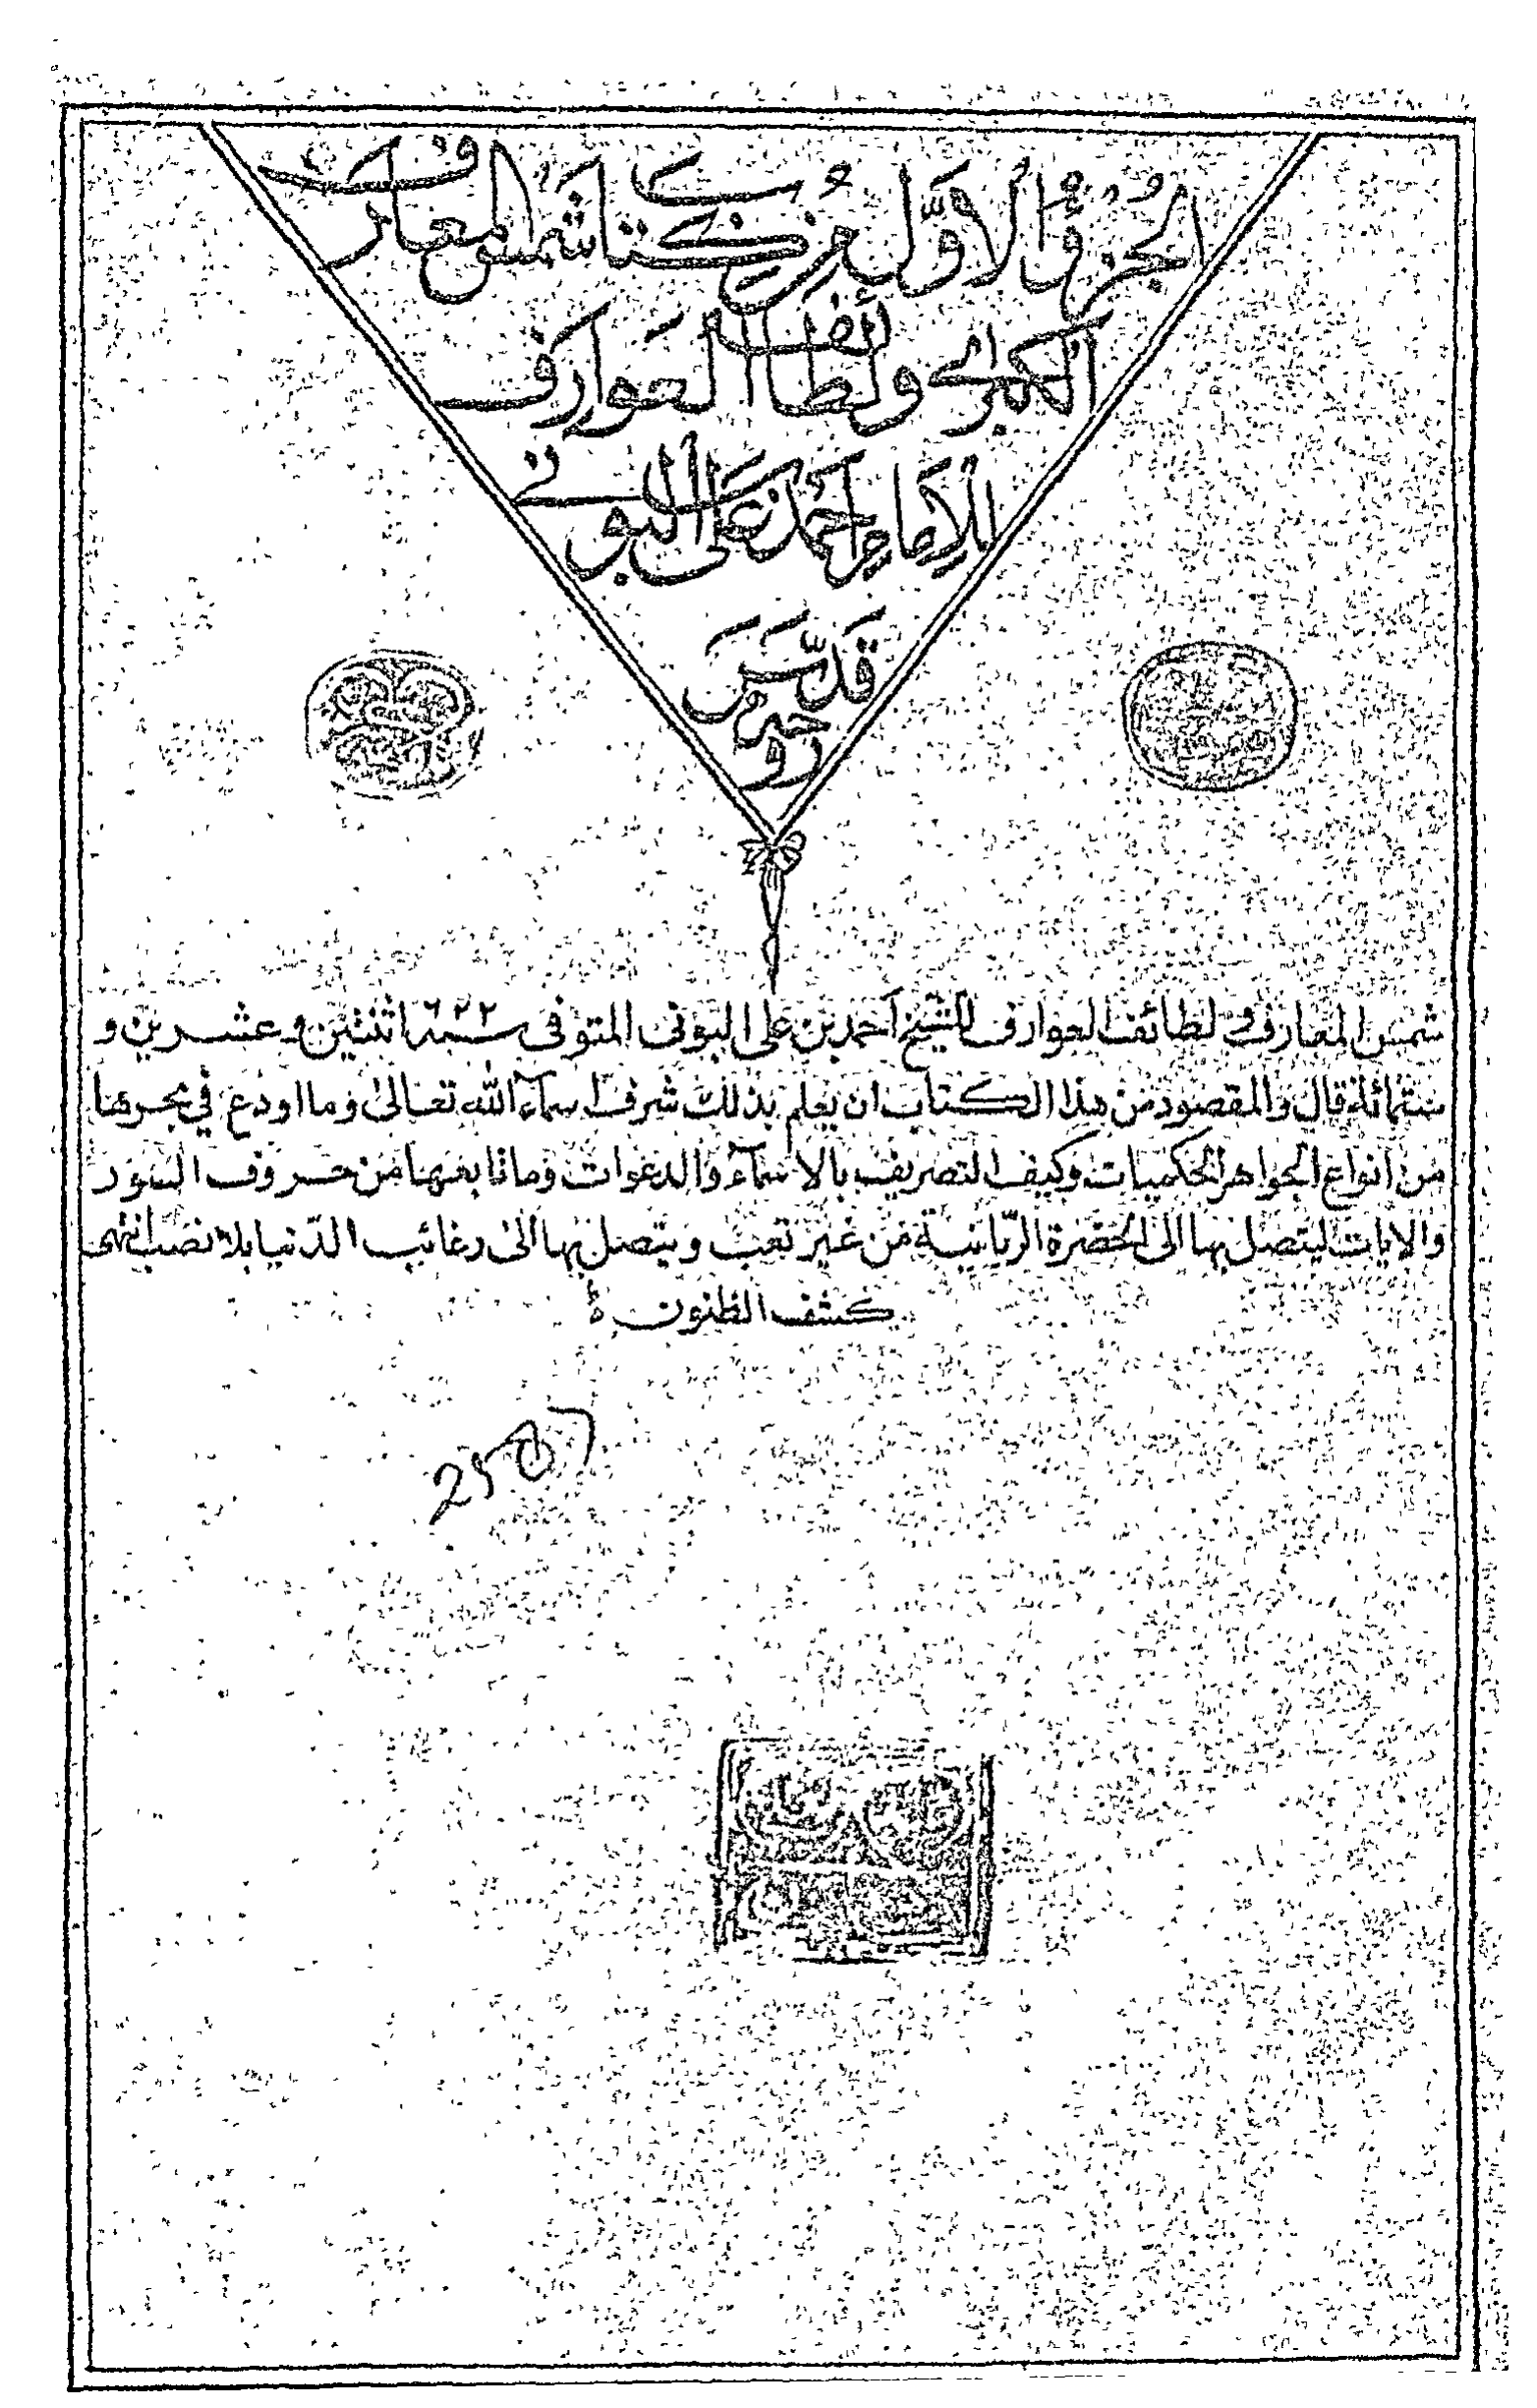 الجزؤ الاوّل من كتاب شمس المعارف
الكبرى ولطائف العوارف
للامام احمد بن على البونى
قدّس
روحه
شمس المعارف ولطائف العوارف للشيخ احمد بن على البونى المتوفى سنة ٦٢٢ اثنتين وعشرين و
ستمائة قال والمقصود من هذا الكتاب ان يعلم بذلك شرف اسمآء الله تعالى وما اودع فى بحرها
من انواع الجواهر الحكميات وكيف التصريف بالاسمآء والدعوات وما تابعها من حروف السور
والايات ليتصل بها الى الحضرة الربّانية من غير تعب ويتصل بها الى رغائب الدنيا بلا نصب انتهى
كشف الظنون